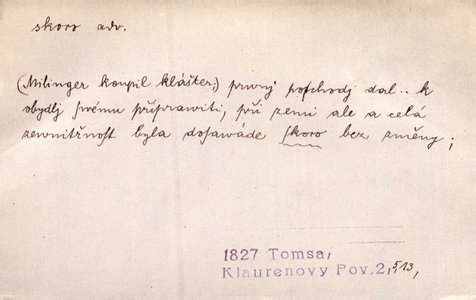 skoro adv.
(Milinger koupil klášter,) prwnj poschodj dal.. k
obydlj swému připrawiti, při zemi ale a celá
zewnitřnost byla dosawáde skoro bez změny;
1827 Tomsa,
Klaurenovy Pov.2, 513,